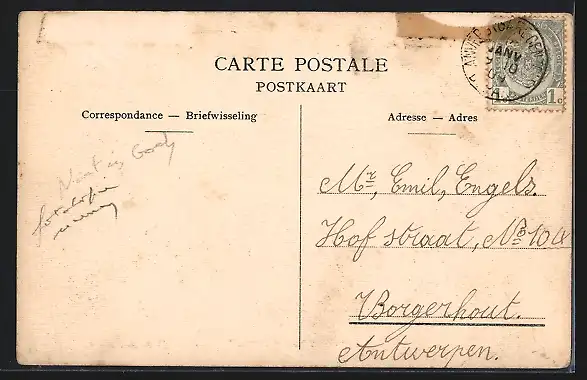 CARTE POSTALE
POSTKAART
Correspondance — Briefwisseling
Adresse — Adres
JANV
1c
Mr, Emil, Engels.
Hof straat, No 104
Borgerhout.
Antwerpen.